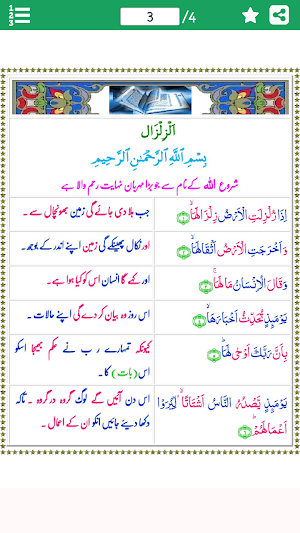 1
2
3
3
/4
الْزِلْزَال
بِسْمِ اللّٰهِ الرَّحْمٰنِ الرَّحِيمِ
شروع اللہ کے نام سے جو بڑا مہربان نہایت رحم والا ہے
اِذَا زُلْزِلَتِ الْاَرْضُ زِلْزَالَهَاۙ ۝۱
جب ہلا دی جائے گی زمین بھونچال سے ۔
وَاَخْرَجَتِ الْاَرْضُ اَثْقَالَهَاۙ ۝۲
اور نکال پھینکے گی زمین اپنے اندر کے بوجھ ۔
وَقَالَ الْاِنْسَانُ مَا لَهَاۚ ۝۳
اور کہے گا انسان اس کو کیا ہوا ہے ۔
يَوْمَىِٕذٍ تُحَدِّثُ اَخْبَارَهَاۙ ۝۴
اس روز وہ بیان کر دے گی اپنے حالات ۔
بِاَنَّ رَبَّكَ اَوْحٰى لَهَاؕ ۝۵
کیونکہ تمہارے رب نے حکم بھیجا اسکو
اس (بات) کا ۔
يَوْمَىِٕذٍ يَّصْدُرُ النَّاسُ اَشْتَاتًا ۙ لِّيُرَوْا
اَعْمَالَهُمْؕ ۝۶
اس دن آئیں گے لوگ گروہ در گروہ ۔ تاکہ
دکھا دیئے جائیں انکو ان کے اعمال ۔